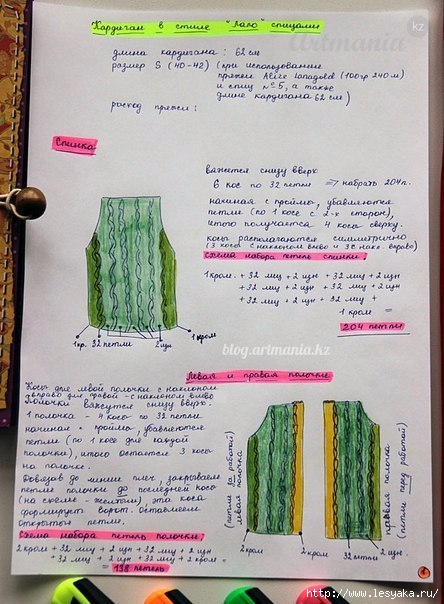 Кардиган в стиле "Лало" спицами
Artmania.kz
длина кардигана: 62 см
размер S (40-42) (при использование
пряжи Alize lanagold (100гр 240м)
и спиц №5, а также
длине кардигана 62 см)
расход пряжи:
Спинка
вяжется снизу вверх
6 кос по 32 петли => набрать 204п.
начиная с проймы, убавляются
петли (по 1 косе с 2-х сторон),
итого получается 4 косы сверху.
косы располагаются симметрично
(3 косы с наклоном влево и 3 с накл. вправо)
схема набора петель спинки:
1 кром. + 32 лиц + 2 изн + 32 лиц + 2 изн
+ 32 лиц + 2 изн + 32 лиц + 2 изн
+ 32 лиц + 2 изн + 32 лиц +
1 кром =
204 петли
1кр. 32 петли 2 изн 1 кром
blog.artmania.kz
Левая и правая полочки
Косы для левой полочки с наклоном
вправо для правой - с наклоном влево
Полочки вяжутся снизу вверх.
1 полочка - 4 косы по 32 петли
начиная с проймы, убавляются
петли (по 1 косе для каждой
полочки), итого остается 3 косы
на полочке.
Довязав до линии плеч, закрываем
петли полочки до последней косы
(на схеме - желтая) эта коса
формирует ворот. Оставляем
открытыми петли.
Схема набора петель полочки:
2 кром + 32 лиц + 2 изн + 32 лиц + 2 изн
+ 32 лиц + 2 изн + 32 лиц + 2 кром =
= 138 петель
(петли за работой)
левая полочка
правая полочка
(петли перед работой)
2 кром 2 кром 32 петли 2 изн.
http://www.lesyaka.ru/